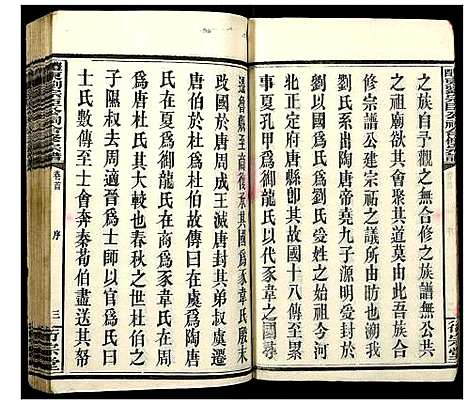 之族自予觀之無合修之族譜無公共
之祖廟欲其會聚共道莫由此吾族合
修宗譜公建宗祊之議所由昉也溯我
劉氏系出陶唐帝堯九子源明受封
劉爲劉氏受姓始祖今河
北正定府唐縣即其國十八傳劉累
事夏孔甲爲御龍氏以代豕韋之國尋
遷魯縣至商復承其國爲豕韋氏殷末
改國於唐周成王滅唐封其弟叔虞遷
唐伯於杜爲杜伯故傳曰在虞爲陶唐
氏在夏爲御龍氏在商爲豕韋氏在周
爲唐杜氏其大較也春秋之世杜伯之
子隰叔去周適晉爲士師以官爲氏曰
士氏數傳至士會奔秦荀伯盡送其帑
卷首 序 三